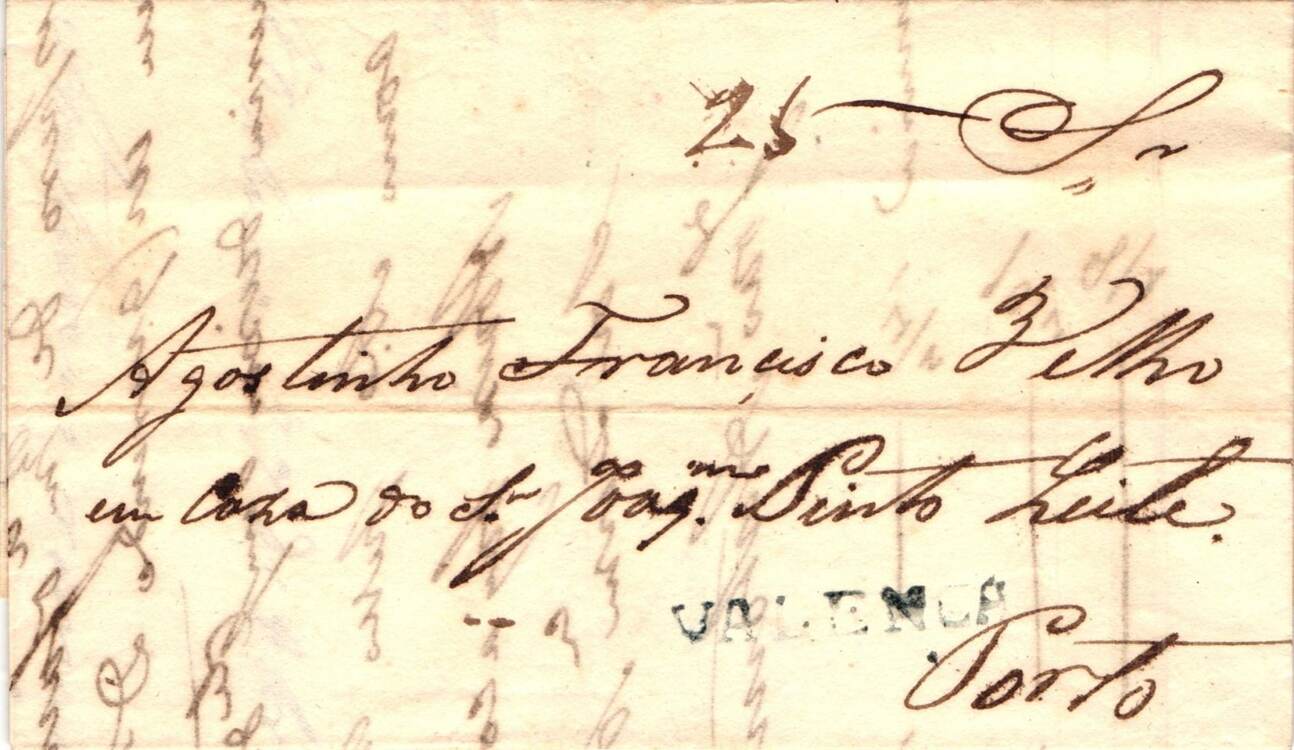 25 Sr
Agostinho Francisco Velho
em Caza do Sr. Joaqm. Pinto Leite.
VALENÇA
Porto